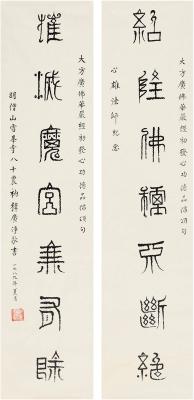 紹隆佛種不斷絕
大方廣佛華嚴經初發心功德品偈頌句
心雄法師紀念
大方廣佛華嚴經初發心功德品偈頌句
摧滅魔宮無有餘
僧山雪峯寺八十衰衲釋廣淨敬書
一九八九年夏月